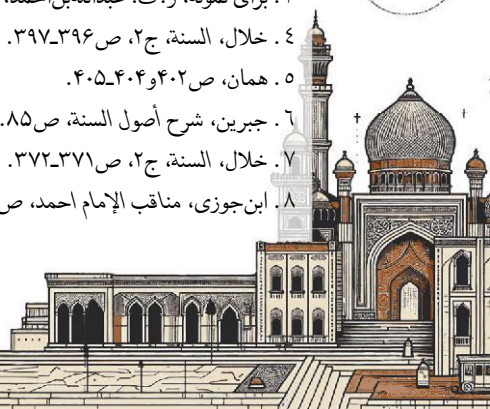 برای نمونه، ر.ک: عبدالله‌بن‌احمد،
٤. خلال، السنة، ج۲، ص۳۹۶ـ۳۹۷.
۵. همان، ص۴۰۲و۴۰۴ـ۴۰۵.
۶. جبرین، شرح أصول السنة، ص۸۵.
۷. خلال، السنة، ج۲، ص۳۷۱ـ۳۷۲.
۸. ابن‌جوزی، مناقب الإمام احمد، ص